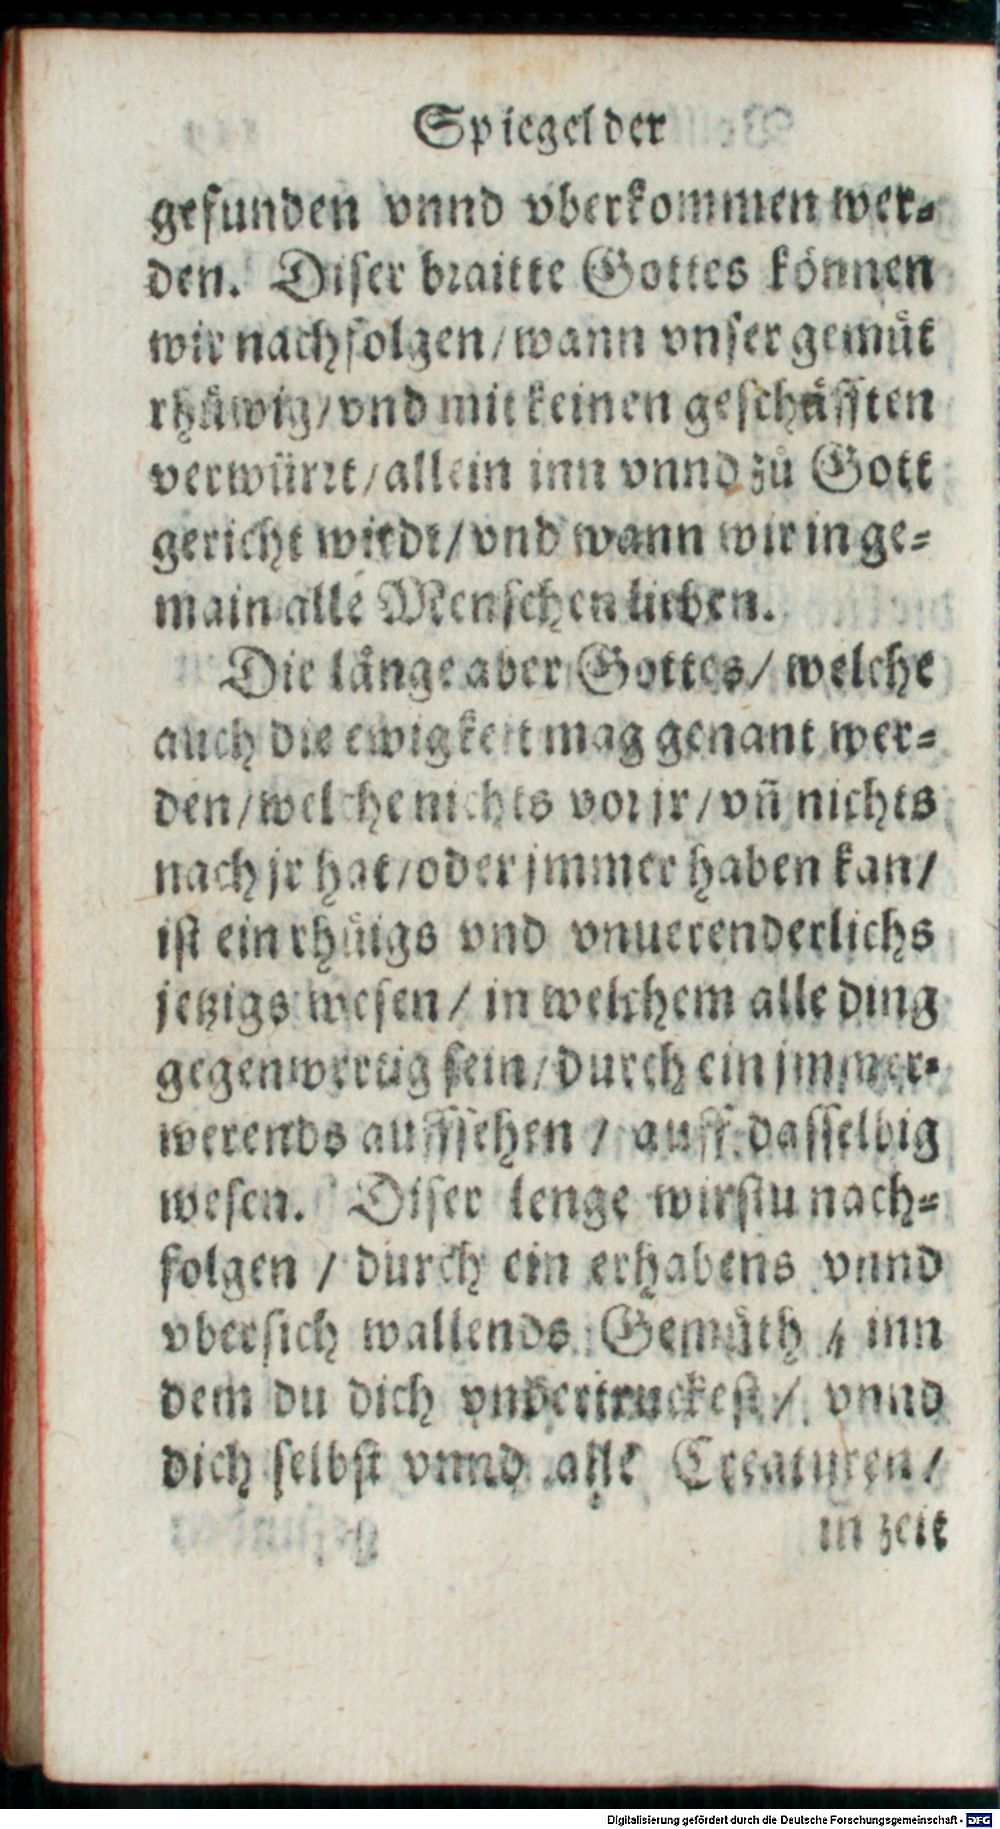 Spiegel der
gefunden vnnd vberkommen wer-
den. Diser braitte Gottes können
wir nachfolgen/wann vnser gemüt
rhüwig/vnd mit keinen geschäfften
verwürrt/allein inn vnnd zů Gott
gericht wirdt/vnd wann wir in ge-
main alle Menschen lieben.
Die länge aber Gottes/ welche
auch die ewigkeit mag genant wer-
den/welche nichts vor jr/vñ nichts
nach jr hat/oder jmmer haben kan/
ist ein rhüigs vnd vnuerenderlichs
jetzigs wesen/ in welchem alle ding
gegenwertig sein/durch ein jmmer-
werends auffsehen / auff dasselbig
wesen. Diser lenge wirstu nach-
folgen / durch ein erhabens vnnd
vbersich wallends Gemüth / inn
dem du dich vndertruckest/ vnnd
dich selbst vnnd alle Creaturen/
in zeit
Digitalisierung gefördert durch die Deutsche Forschungsgemeinschaft - DFG